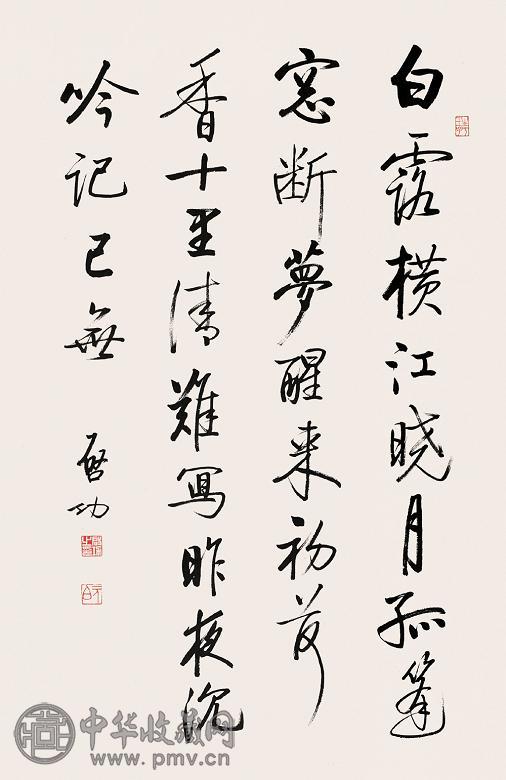 白露横江晓月孤篷
窓断夢醒来初荷
香十里清難寫昨夜沉
吟记已無
启功
中华收藏网
www.pmv.cn